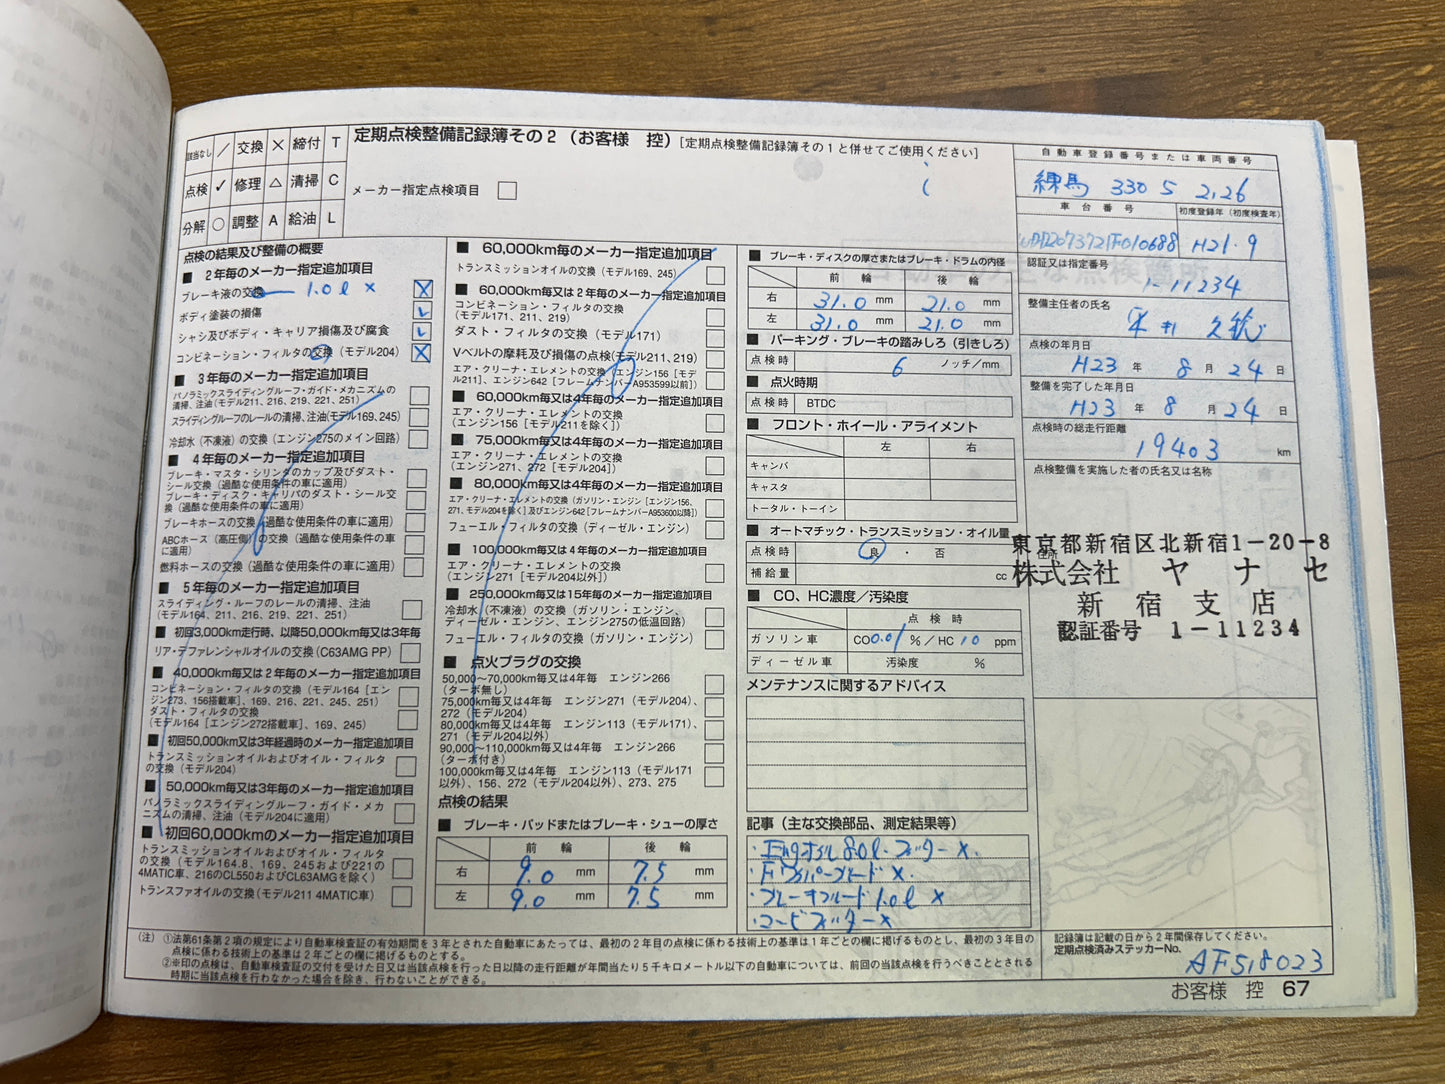 定期点検整備記録簿その2（お客様　控）[定期点検整備記録簿その1と併せてご使用ください]
該当なし ／ 交換 × 締付 T
点検 ✓ 修理 △ 清掃 C
分解 ○ 調整 A 給油 L
メーカー指定点検項目
点検の結果及び整備の概要
■ 2年毎のメーカー指定追加項目
ブレーキ液の交換 1.0ℓ ×
ボディ塗装の損傷
シャシ及びボディ・キャリア損傷及び腐食
コンビネーション・フィルタの交換（モデル204）
■ 3年毎のメーカー指定追加項目
パノラミックスライディングルーフ・ガイド・メカニズムの
清掃、注油（モデル211、216、219、221、251）
スライディングルーフのレールの清掃、注油（モデル169、245）
冷却水（不凍液）の交換（エンジン275のメイン回路）
■ 4年毎のメーカー指定追加項目
ブレーキ・マスタ・シリンダのカップ及びダスト・
シール交換（過酷な使用条件の車に適用）
ブレーキ・ディスク・キャリパのダスト・シール交
換（過酷な使用条件の車に適用）
ブレーキホースの交換（過酷な使用条件の車に適用）
ABCホース（高圧側）の交換（過酷な使用条件の車
に適用）
燃料ホースの交換（過酷な使用条件の車に適用）
■ 5年毎のメーカー指定追加項目
スライディング・ルーフのレールの清掃、注油
（モデル164、211、216、219、221、251）
■ 初回3,000km走行時、以降50,000km毎又は3年毎
リア・デファレンシャルオイルの交換（C63AMG PP）
■ 40,000km毎又は2年毎のメーカー指定追加項目
コンビネーション・フィルタの交換（モデル164［エン
ジン273、156搭載車］、169、216、221、245、251）
ダスト・フィルタの交換
（モデル164［エンジン272搭載車］、169、245）
■ 初回50,000km又は3年経過時のメーカー指定追加項目
トランスミッションオイルおよびオイル・フィルタ
の交換（モデル204）
■ 50,000km毎又は3年毎のメーカー指定追加項目
パノラミックスライディングルーフ・ガイド・メカ
ニズムの清掃、注油（モデル204に適用）
■ 初回60,000kmのメーカー指定追加項目
トランスミッションオイルおよびオイル・フィルタ
の交換（モデル164.8、169、245および221の
4MATIC車、216のCL550およびCL63AMGを除く）
トランスファオイルの交換（モデル211 4MATIC車）
■ 60,000km毎のメーカー指定追加項目
トランスミッションオイルの交換（モデル169、245）
■ 60,000km毎又は2年毎のメーカー指定追加項目
コンビネーション・フィルタの交換
（モデル171、211、219）
ダスト・フィルタの交換（モデル171）
Vベルトの摩耗及び損傷の点検（モデル211、219）
エア・クリーナ・エレメントの交換（エンジン156［モデ
ル211］、エンジン642［フレームナンバーA953599以前］）
■ 60,000km毎又は4年毎のメーカー指定追加項目
エア・クリーナ・エレメントの交換
（エンジン156［モデル211を除く］）
■ 75,000km毎又は4年毎のメーカー指定追加項目
エア・クリーナ・エレメントの交換
（エンジン271、272［モデル204］）
■ 80,000km毎又は4年毎のメーカー指定追加項目
エア・クリーナ・エレメントの交換（ガソリン・エンジン［エンジン156、
271、モデル204を除く］及びエンジン642［フレームナンバーA953600以降］）
フューエル・フィルタの交換（ディーゼル・エンジン）
■ 100,000km毎又は4年毎のメーカー指定追加項目
エア・クリーナ・エレメントの交換
（エンジン271［モデル204以外］）
■ 250,000km毎又は15年毎のメーカー指定追加項目
冷却水（不凍液）の交換（ガソリン・エンジン、
ディーゼル・エンジン、エンジン275の低温回路）
フューエル・フィルタの交換（ガソリン・エンジン）
■ 点火プラグの交換
50,000～70,000km毎又は4年毎　エンジン266
（ターボ無し）
75,000km毎又は4年毎　エンジン271（モデル204）、
272（モデル204）
80,000km毎又は4年毎　エンジン113（モデル171）、
271（モデル204以外）
90,000～110,000km毎又は4年毎　エンジン266
（ターボ付き）
100,000km毎又は4年毎　エンジン113（モデル171
以外）、156、272（モデル204以外）、273、275
点検の結果
■ ブレーキ・パッドまたはブレーキ・シューの厚さ
前　輪　後　輪
右 9.0 mm 7.5 mm
左 9.0 mm 7.5 mm
■ ブレーキ・ディスクの厚さまたはブレーキ・ドラムの内径
前　輪　後　輪
右 31.0 mm 21.0 mm
左 31.0 mm 21.0 mm
■ パーキング・ブレーキの踏みしろ（引きしろ）
点検時 6 ノッチ／mm
■ 点火時期
点検時 BTDC
■ フロント・ホイール・アライメント
左　右
キャンバ
キャスタ
トータル・トーイン
■ オートマチック・トランスミッション・オイル量
点検時 良 ・ 否
補給量 cc
■ CO、HC濃度／汚染度
点検時
ガソリン車 CO 0.01 %／HC 10 ppm
ディーゼル車 汚染度 %
メンテナンスに関するアドバイス
記事（主な交換部品、測定結果等）
・Engオイル 8.0ℓ・フィルター ×.
・Fワイパーブレード ×.
・ブレーキフルード 1.0ℓ ×
・コンビフィルター ×
自動車登録番号または車両番号
練馬 330 S 2126
車台番号 初度登録年（初度検査年）
WDD2073721F010688 H21.9
認証又は指定番号
1-11234
整備主任者の氏名
点検の年月日
H23 年 8 月 24 日
整備を完了した年月日
H23 年 8 月 24 日
点検時の総走行距離
19403 km
点検整備を実施した者の氏名又は名称
住所
東京都新宿区北新宿1-20-8
株式会社 ヤナセ
新宿支店
認証番号 1-11234
（注）①法第61条第2項の規定により自動車検査証の有効期間を3年とされた自動車にあたっては、最初の2年目の点検に係わる技術上の基準は1年ごとの欄に掲げるものとし、最初の3年目の
点検に係わる技術上の基準は2年ごとの欄に掲げるものとする。
②※印の点検は、自動車検査証の交付を受けた日又は当該点検を行った日以降の走行距離が年間当たり5千キロメートル以下の自動車については、前回の当該点検を行うべきこととされる
時期に当該点検を行わなかった場合を除き、行わないことができる。
記録簿は記載の日から2年間保存してください。
定期点検済みステッカーNo.
AF518023
お客様　控 67